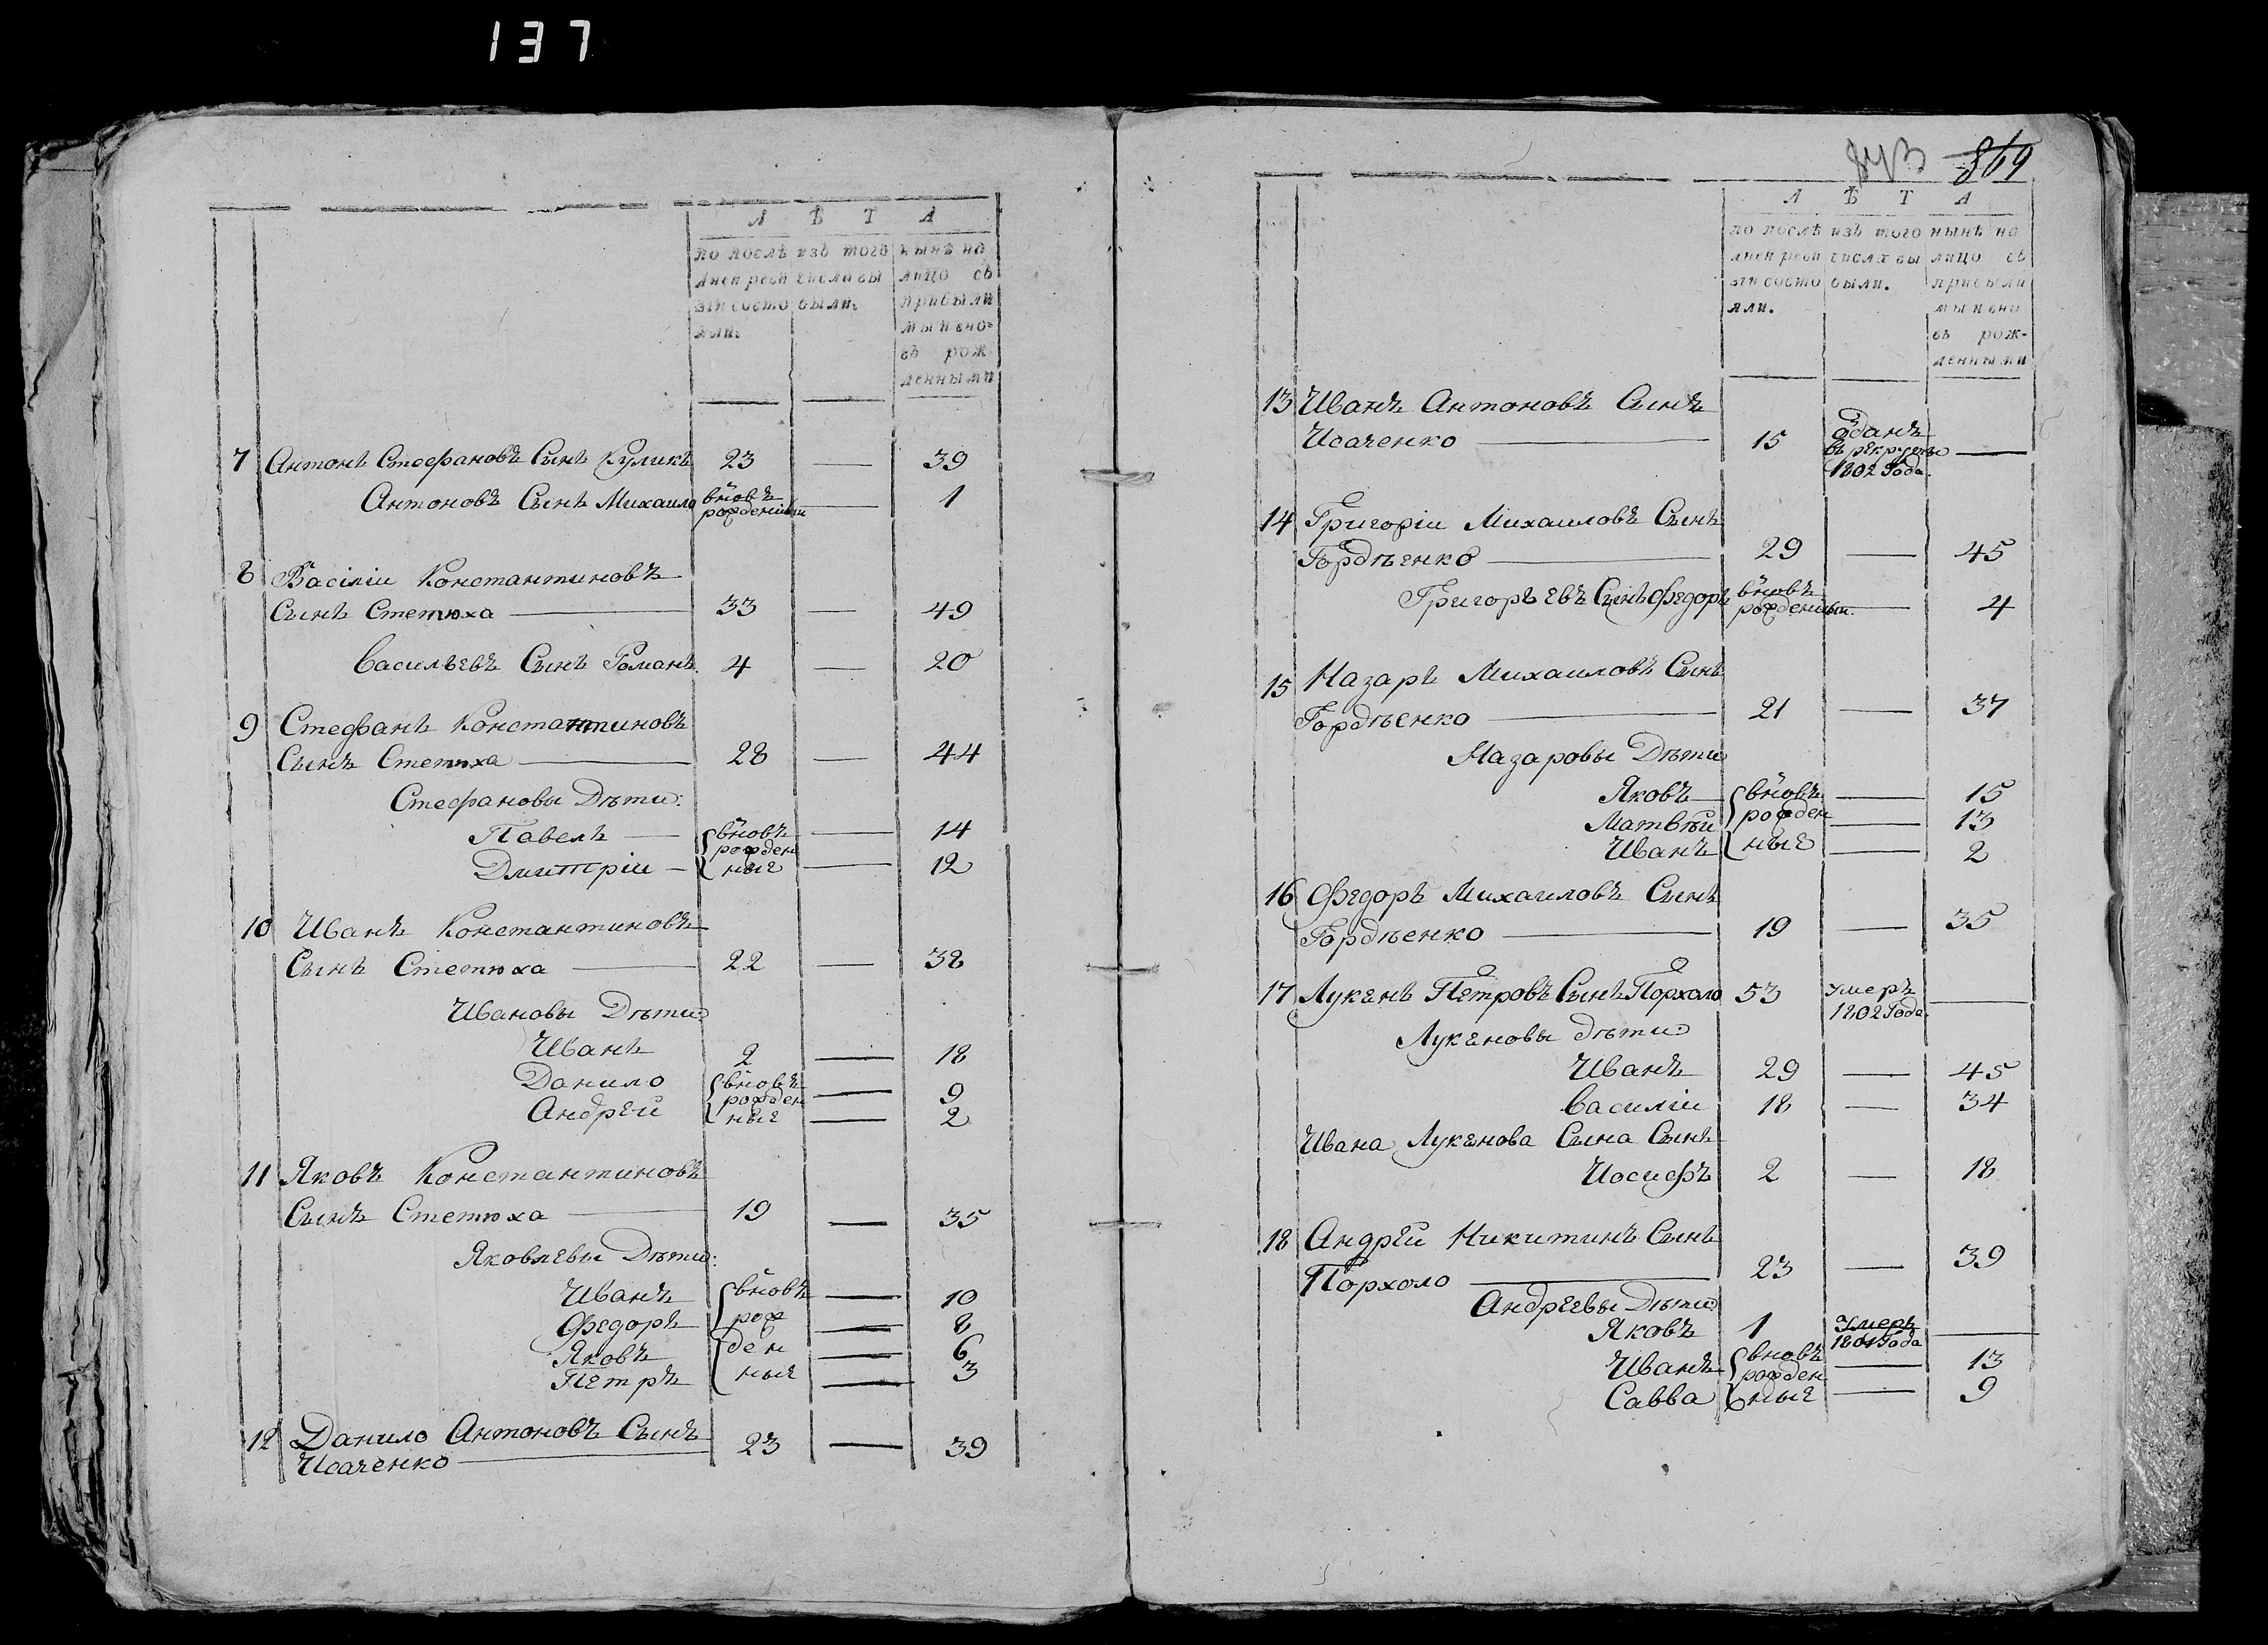 137
Л Ѣ Т А
по послѣ изъ того нынѣ на
дней реви числа вы лицо съ
зіи состо были. прибылы
яли. мы и вно
въ рож
денными
7 Антонъ Стефановъ Сынъ Куликъ 23 — 39
Антоновъ Сынъ Михаило вновь рожденный — 1
8 Васілій Константиновъ
Сынъ Стетюха — 33 — 49
Васильевъ Сынъ Романъ 4 — 20
9 Стефанъ Константиновъ
Сынъ Стетюха — 28 — 44
Стефановы Дѣти:
Павелъ — вновь — 14
рожден
Дмитрій — ные — 12
10 Иванъ Константиновъ
Сынъ Стетюха — 22 — 38
Ивановы Дѣти:
Иванъ 2 — 18
Данило вновь — 9
рожден
Андрей ные — 2
11 Яковъ Константиновъ
Сынъ Стетюха — 19 — 35
Яковлевы Дѣти:
Иванъ вновь — 10
Федоръ рож — 8
Яковъ ден — 6
Петръ ные — 3
12 Данило Антоновъ Сынъ
Исаченко — 23 — 39
843 869
Л Ѣ Т А
по послѣ изъ того нынѣ на
дней реви числа вы лицо съ
зіи состо были. прибылы
яли. мы и вно
въ рож-
денными
13 Иванъ Антоновъ Сынъ
Исаченко — 15 Отданъ —
въ рекруты
1802 Года
14 Григорій Михаиловъ Сынъ
Гордѣенко — 29 — 45
Григорьевъ Сынъ Федоръ вновь рожденный — 4
15 Назаръ Михаиловъ Сынъ
Гордѣенко — 21 — 37
Назаровы Дѣти
Яковъ — вновь — 15
Матвѣй рожден — 13
Иванъ ные — 2
16 Федоръ Михаиловъ Сынъ
Гордѣенко — 19 — 35
17 Лукенъ Петровъ Сынъ Порхоло 53 умеръ —
1802 Года
Лукеновы Дѣти:
Иванъ 29 — 45
Василій 18 — 34
Ивана Лукенова Сына Сынъ
Иосифъ 2 — 18
18 Андрей Никитинъ Сынъ
Порхоло — 23 — 39
Андреевы Дѣти:
Яковъ 1 Умеръ —
1801 Года
Иванъ вновь — 13
рожден
Савва ные — 9